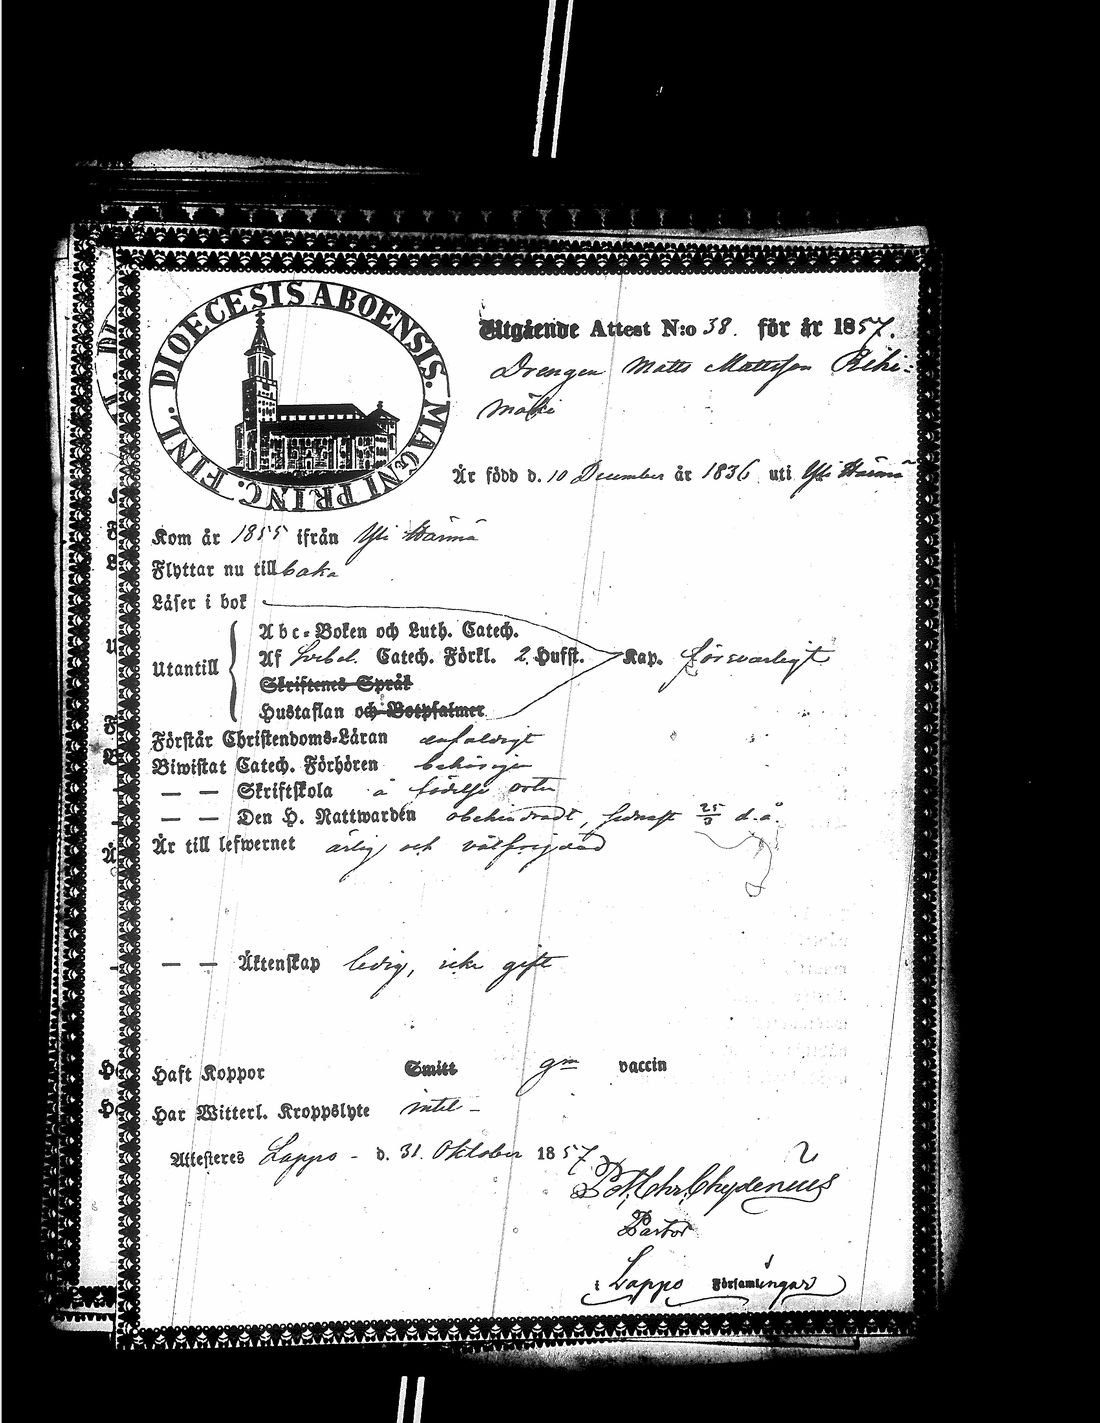 DIOECESIS ABOENSIS. MAGNI PRINC. FINL.
Utgående Attest N:o 38. för år 1857.
Drengen Matts Mattsson Riihi-
mäki
Är född d. 10 December år 1836 uti Yli Härmä
Kom år 1855 ifrån Yli Härmä
Flyttar nu till baka
Läser i bok
Abc-Boken och Luth. Catech.
Utantill Af Svebel. Catech. Förkl. 2. Hufst. Kap. försvarligt
Skriftenes Språk
Hustaflan och Botpsalmer
Förstår Christendoms-Läran enfaldigt
Biwistat Catech. Förhören behörigen
— — Skriftskola å födelse orten
— — Den H. Nattwarden obehindradt, sednast 25/ d.å.
Är till lefwernet ärlig och välfrejdad
— — Äktenskap ledig, icke gift
Haft Koppor Smitt gm vaccin
Har Witterl. Kroppslyte intet -
Attesteres Lappo - d. 31. Oktober 1857
Chydenius
Pastor
i Lappo Församlingar